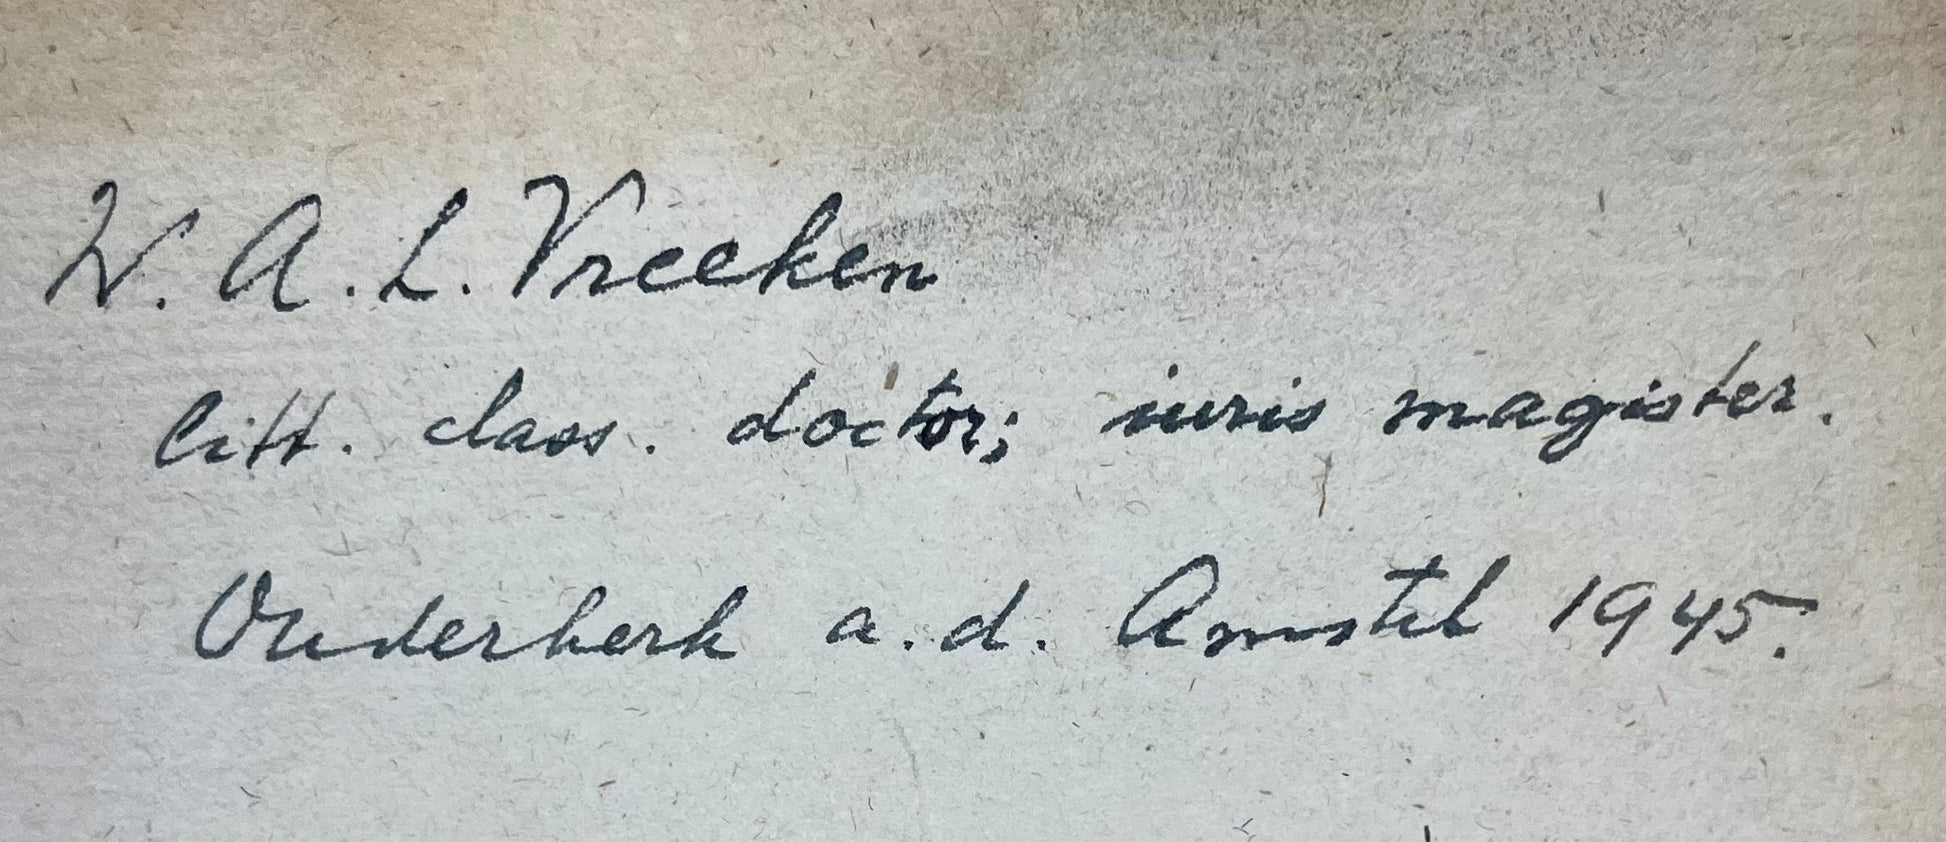 W. A. L. Vreeken
litt. class. doctor; iuris magister.
Ouderkerk a.d. Amstel 1945.